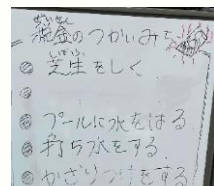 ぜいきん
税金のつかいみち
しばふ
◎ 芝生をしく
◎
◎ プールに水をはる
◎ 打ち水をする
◎ かざりつけをする